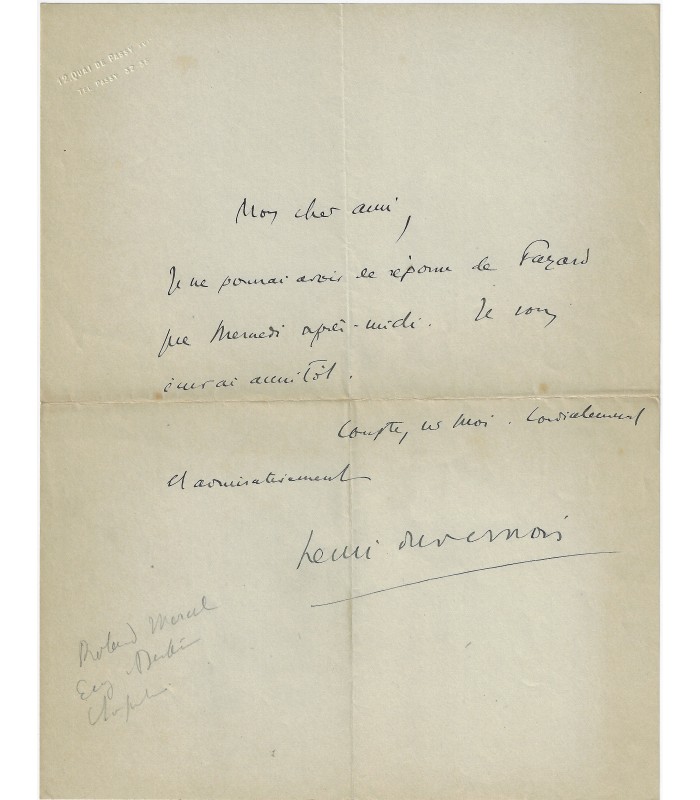 12 QUAI DE PASSY
TEL PASSY
Mon cher ami,
Je ne pourrai avoir la réponse de Fayard
que Mercredi après-midi. Je vous
écrirai aussitôt.
Comptez sur moi. Cordialement
et admirativement
Henri Duvernois
Roland Marcel